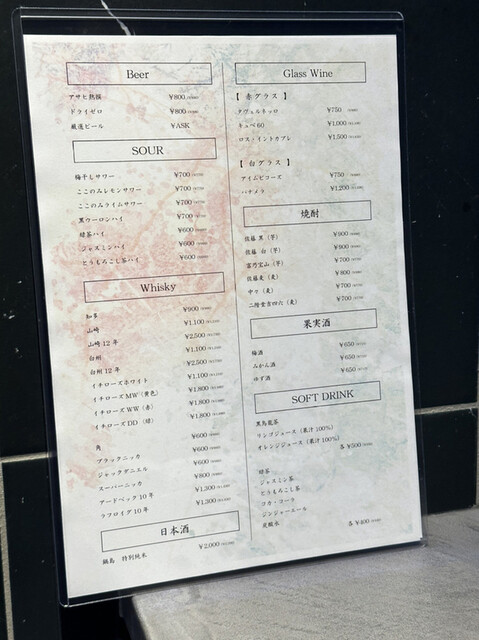 Beer
アサヒ熟撰 ¥800
ドライゼロ ¥800
厳選ビール ¥ASK
SOUR
梅干しサワー ¥700
ここのみレモンサワー ¥700
ここのみライムサワー ¥700
黒ウーロンハイ ¥700
緑茶ハイ ¥600
ジャスミンハイ ¥600
とうもろこし茶ハイ ¥600
Whisky
知多 ¥900
山崎 ¥1,100
山崎12年 ¥2,500
白州 ¥1,100
白州12年 ¥2,500
イチローズホワイト ¥1,100
イチローズMW（黄色） ¥1,800
イチローズWW（赤） ¥1,800
イチローズDD（緑） ¥1,800
角 ¥600
ブラックニッカ ¥600
ジャックダニエル ¥600
スーパーニッカ ¥800
アードベック10年 ¥1,300
ラフロイグ10年 ¥1,300
日本酒
鍋島 特別純米 ¥2,000
Glass Wine
【 赤グラス 】
タヴェルネッロ ¥750
キュベ60 ¥1,000
ロス・イントカブレ ¥1,500
【 白グラス 】
アイムビフーズ ¥750
ハナメラ ¥1,200
焼酎
佐藤 黒（芋） ¥900
佐藤 白（芋） ¥900
富乃宝山（芋） ¥700
佐藤麦（麦） ¥800
中々（麦） ¥700
二階堂吉四六（麦） ¥700
果実酒
梅酒 ¥650
みかん酒 ¥650
ゆず酒 ¥650
SOFT DRINK
黒烏龍茶
リンゴジュース（果汁100%）
オレンジジュース（果汁100%）
各 ¥500
緑茶
ジャスミン茶
とうもろこし茶
コカ・コーラ
ジンジャーエール
炭酸水 各¥400